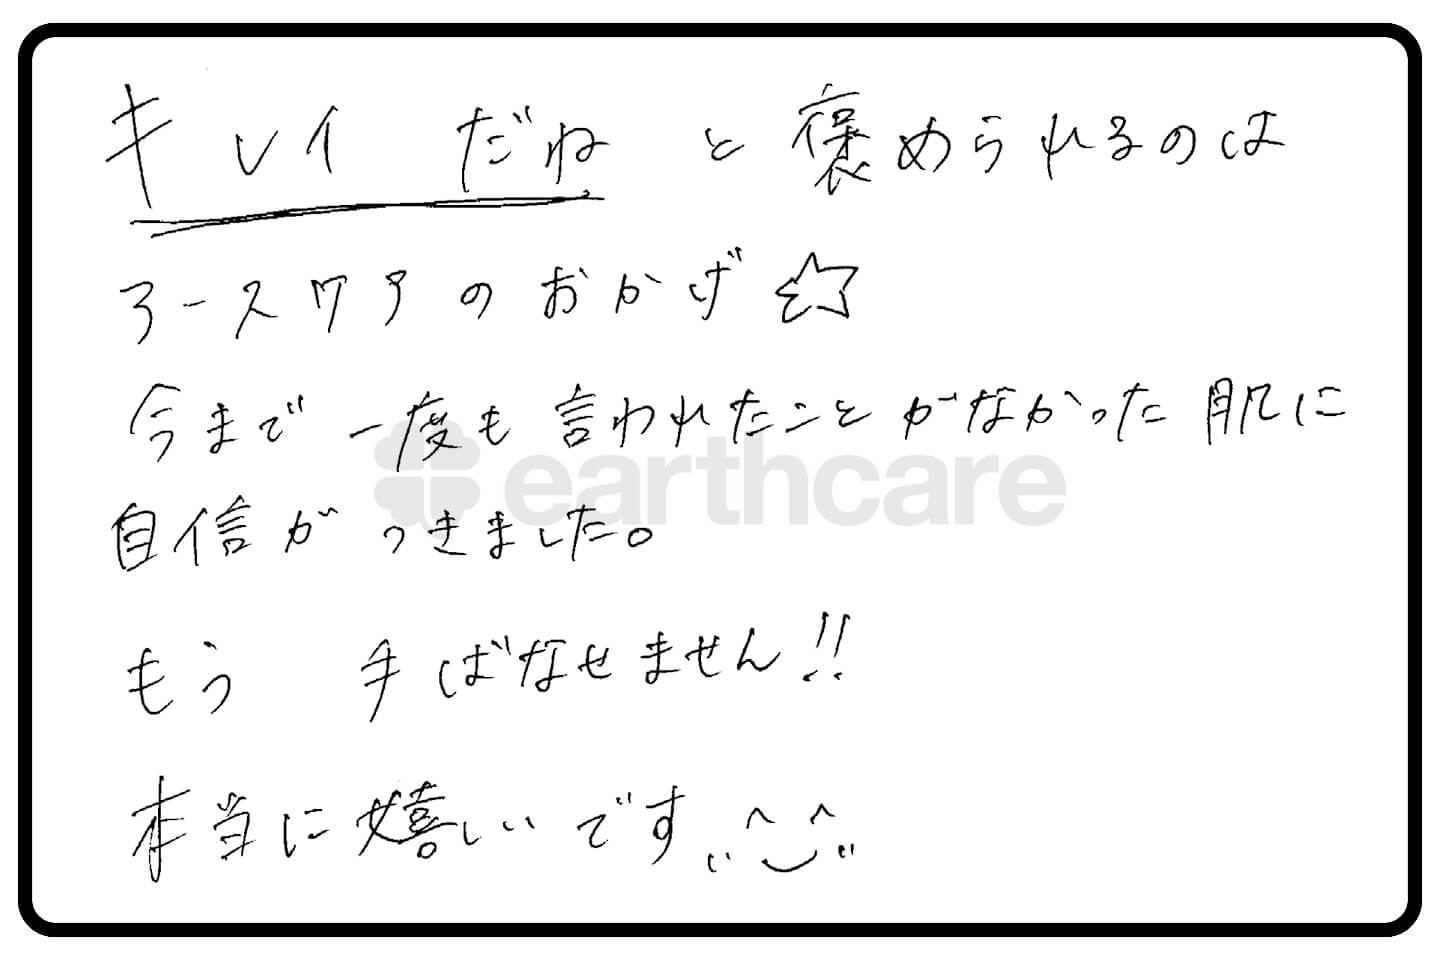 キレイ だね と褒められるのは
アースケアのおかげ☆
今まで一度も言われたことがなかった肌に
earthcare
自信がつきました。
もう 手ばなせません!!
本当に嬉しいです